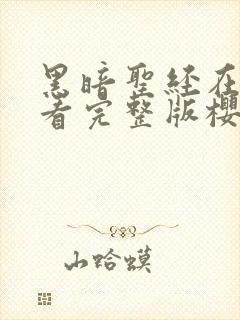 黑暗聖経在
看完整版櫻
山蛤蟆